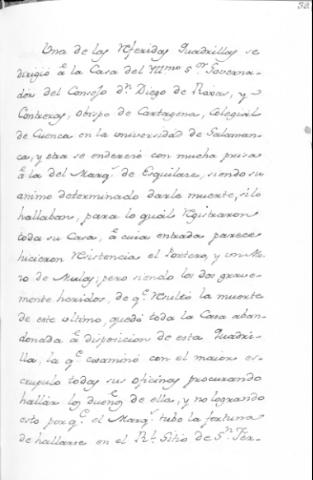 38
Una de las referidas Quadrillas se
dirigió â la Casa del Yllmo. Sr. Governa-
dor del Consejo Dn. Diego de Roxas, y
Contreras, obispo de Cartagena, Colegial
de Cuenca en la universidad de Salaman-
ca, y otra se enderezó con mucha prisa
â la del Marqs. de Esquilace, siendo su
animo determinado darle muerte, si lo
hallaban, para lo qual registraron
toda su Casa, â cuia entrada parece
hicieron resistencia el Portero, y un Mo-
zo de Mulas; pero siendo los dos grave-
mente heridos, de qe. resultó la muerte
de este ultimo, quedó toda la Casa aban-
donada â disposicion de esta Quadri-
lla, la qe. examinó con el maior es-
crupulo todas sus oficinas procurando
hallar los dueños de ella, y no logrando
esto porqe. el Marqs. tubo la fortuna
de hallarse en el Rl. Sitio de Sn. Fer-